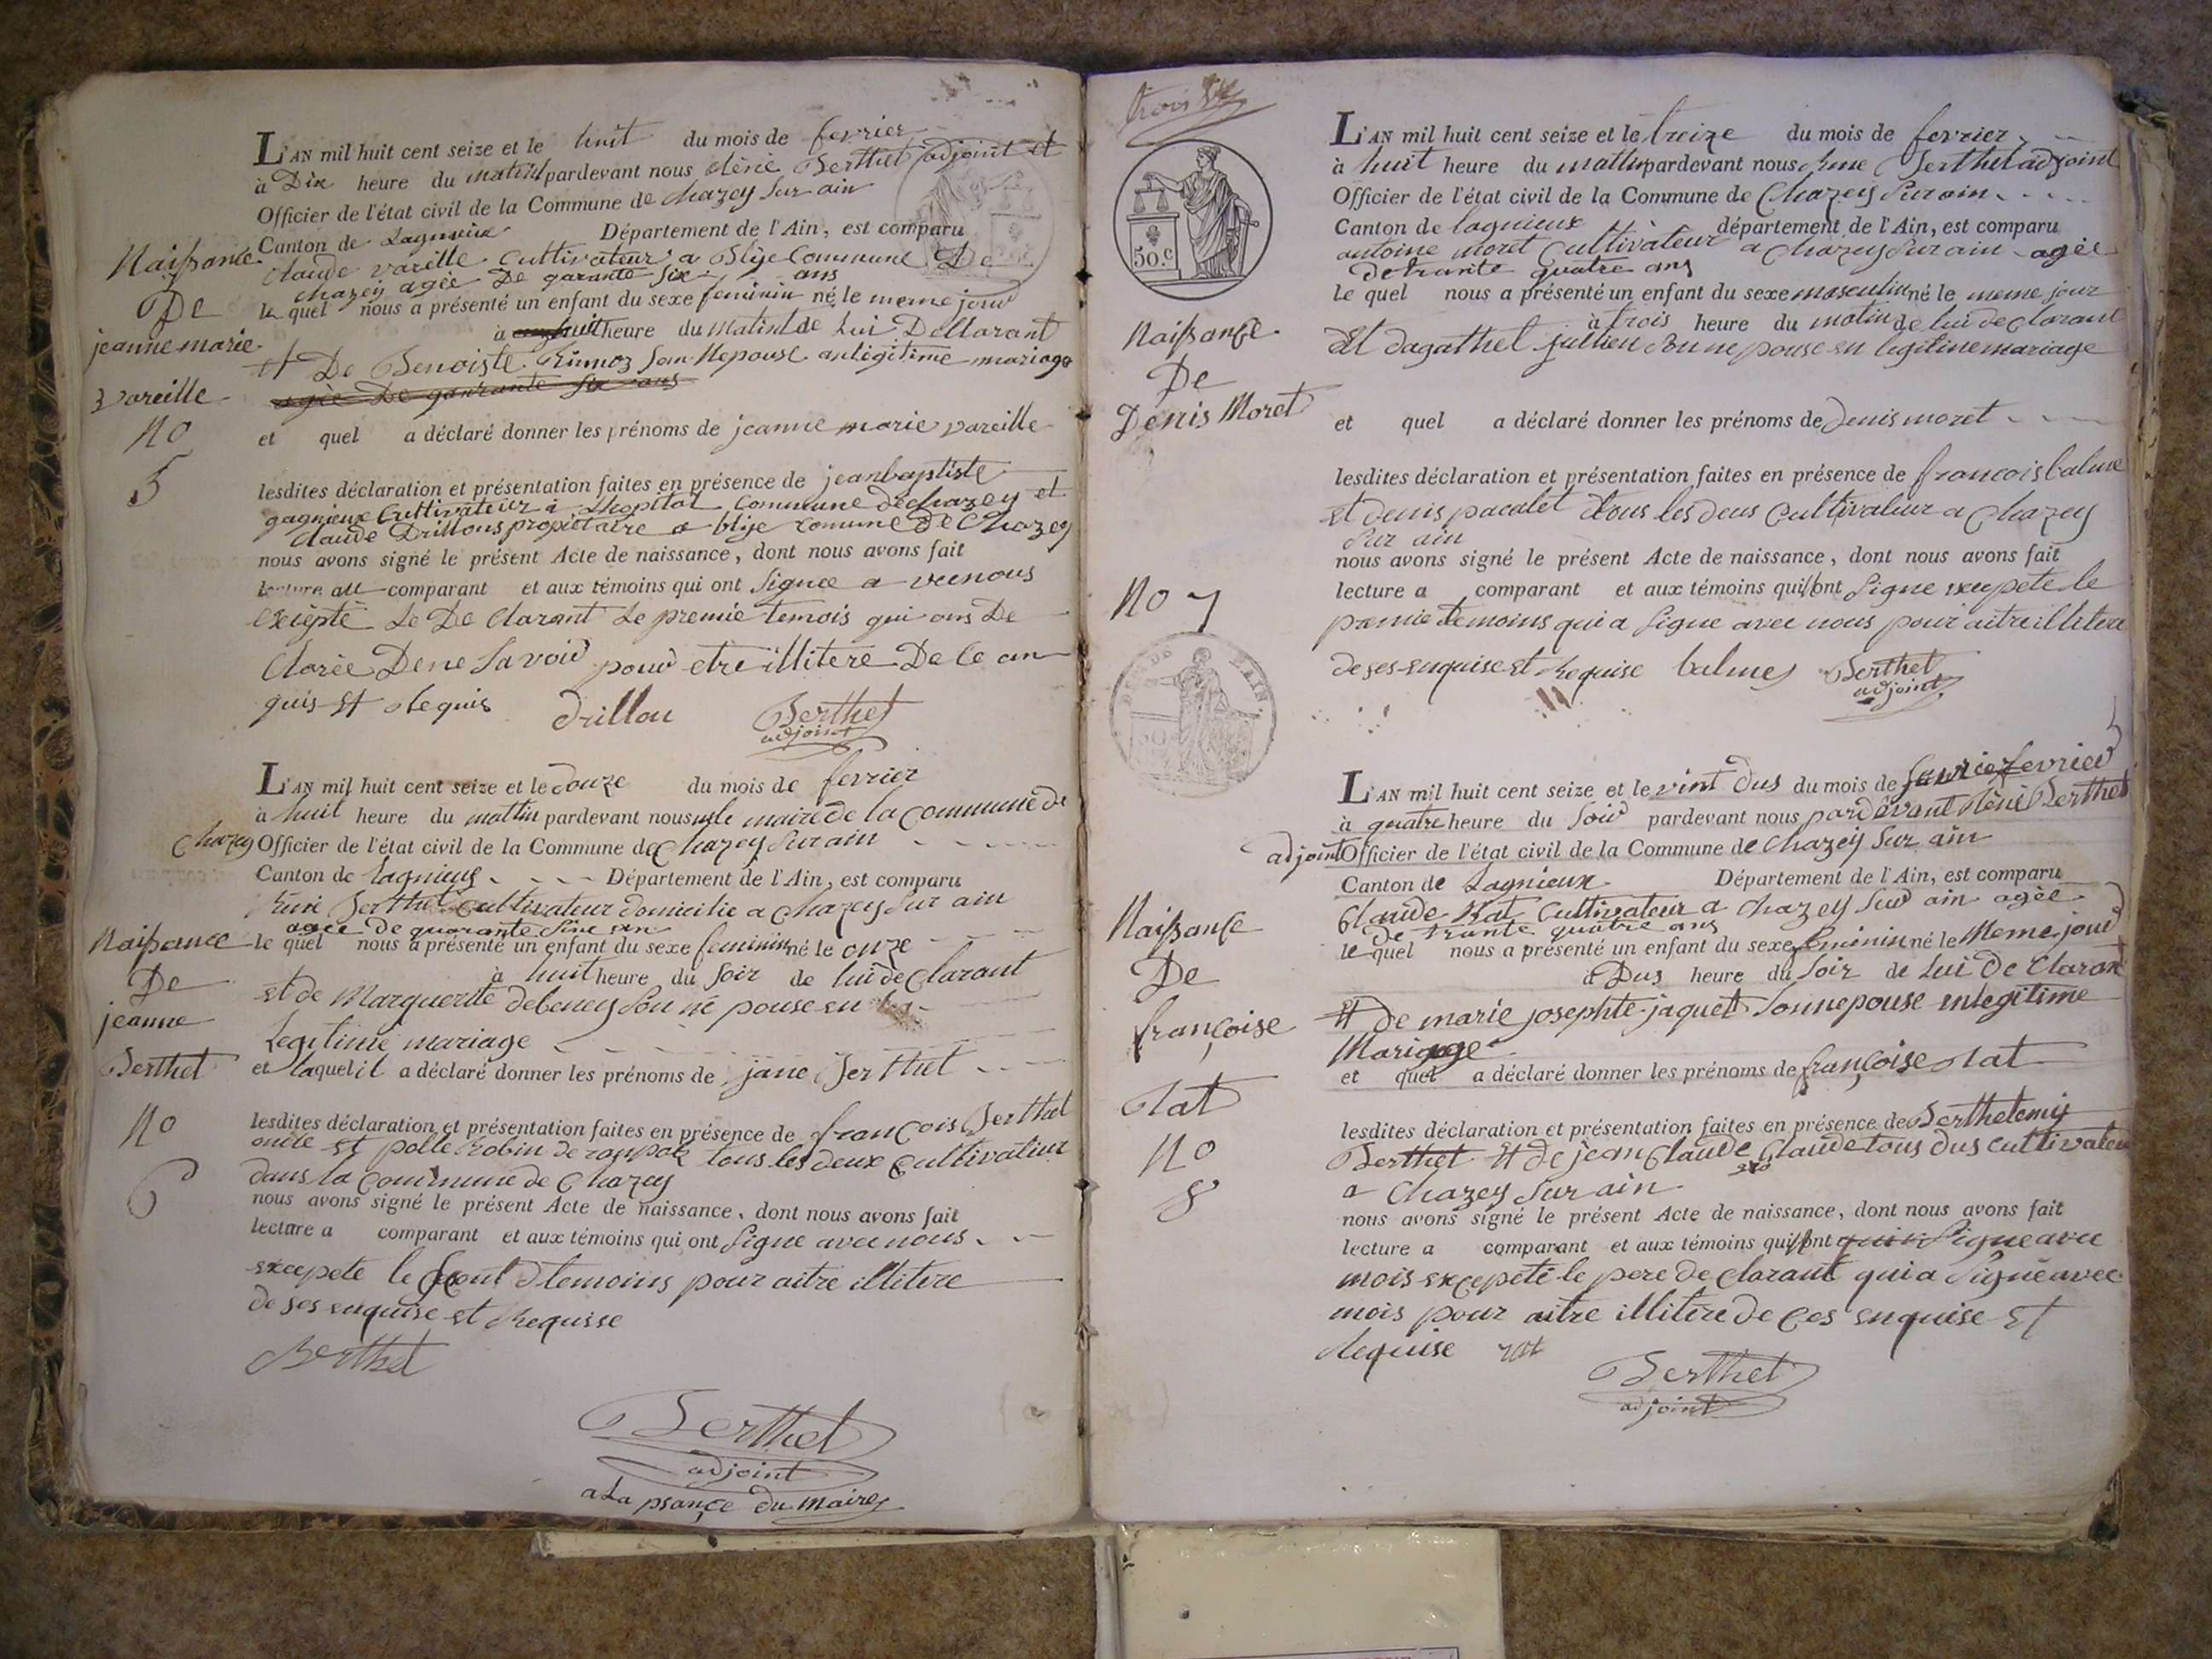 L'AN mil huit cent seize et le huit du mois de fevrier
à Dix heure du matin pardevant nous Réné Berthet adjoint et
Officier de l'état civil de la Commune de chazey sur ain
Canton de Lagnieux Département de l'Ain, est comparu
claude vareille cultivateur a Blÿe Commune De
chazeÿ agée De garante six ans
le quel nous a présenté un enfant du sexe feminin né le meme jour
à huit heure du matin de Lui Declarant
et De Benoiste son Nepouse anlegitime mariage
agée De garante six ans
et quel a déclaré donner les prénoms de jeanne marie vareille
lesdites déclaration et présentation faites en présence de jean baptiste
gagnieux Cultivateur a Lhopital Commune de chazey et
claude Drillon propietaire a blije Comune De Chazey
nous avons signé le présent Acte de naissance, dont nous avons fait
lecture au comparant et aux témoins qui ont signee a vecnous
excèpté Le De clarant Le premie temois qui ons De
clarée Dene Savoir pour etre illitere De ce an
quis Et Requis drillon Berthet
adjoint
Naissance
De
jeanne marie
vareille
No
5
L'AN mil huit cent seize et le douze du mois de fevrier
à huit heure du mattin pardevant nous le maire de la commune de
chazey Officier de l'état civil de la Commune de Chazey sur ain
Canton de lagnieux Département de l'Ain, est comparu
Réné Berthet cultivateur domicilié a chazey sur ain
agée De quarante
le quel nous a présenté un enfant du sexe feminin né le onze
à huit heure du soir de lui de clarant
et de Marguerite debeney son né pouse en
Legitime mariage
et laquel il a déclaré donner les prénoms de jane Berthet
lesdites déclaration et présentation faites en présence de françois Berthet
oncle et polle Robin de tous les deux cultivatiur
dans la Commune de Chazey
nous avons signé le présent Acte de naissance, dont nous avons fait
lecture a comparant et aux témoins qui ont signe avec nous
excepete le temoins pour aitre illitere
de ses enquise et Requisse
Berthet
Berthet
adjoint
a La psance du maire
Naissance
De
jeanne
Berthet
No
6
trois
50.c
L'AN mil huit cent seize et le treize du mois de fevrier
à huit heure du mattin pardevant nous Réne Berthet adjoint
Officier de l'état civil de la Commune de Chazey sur ain
Canton de lagnieux département de l'Ain, est comparu
antoine moret Cultivateur a chazey sur ain agée
de trante quatre ans
Le quel nous a présenté un enfant du sexe masculin né le meme jour
à trois heure du matin de lui declarant
Et dagathet jullien son ne pouse en legitime mariage
et quel a déclaré donner les prénoms de Denis moret
lesdites déclaration et présentation faites en présence de francois balme
et denis pacalet tous les deus Cultivateur a Chazey
sur ain
nous avons signé le présent Acte de naissance, dont nous avons fait
lecture a comparant et aux témoins qui sont signe excepete le
premie temoins qui a signe avec nous pour aitre illitere
de ses enquise et Requise balme Berthet
adjoint
Naissance
De
Denis Moret
No 7
L'AN mil huit cent seize et le vint Dus du mois de fevrier
à quatre heure du soir pardevant nous par devant Réné Berthet
adjoint Officier de l'état civil de la Commune de Chazeÿ sur ain
Canton de Lagnieux Département de l'Ain, est comparu
Claude Rat Cultivateur a Chazey sur ain agée
de trante quatre ans
le quel nous a présenté un enfant du sexe feminin né le Meme jour
à Dus heure du soir de Lui De Clarant
Et De marie josephte jaquet sonnepouse enlegitime
Mariage
et quel a déclaré donner les prénoms de françoise Rat
lesdites déclaration et présentation faites en présence de Berthelemy
Berthet Et de jean Claude Claude tous dus cultivateur
a Chazey sur ain
nous avons signé le présent Acte de naissance, dont nous avons fait
lecture a comparant et aux témoins qui sont signe avec
mois excepeté le pere declarant qui a signé avec
mois pour aitre illitere de ces enquise Et
Requise rat
Berthet
adjoint
Naissance
De
françoise
Rat
No
8